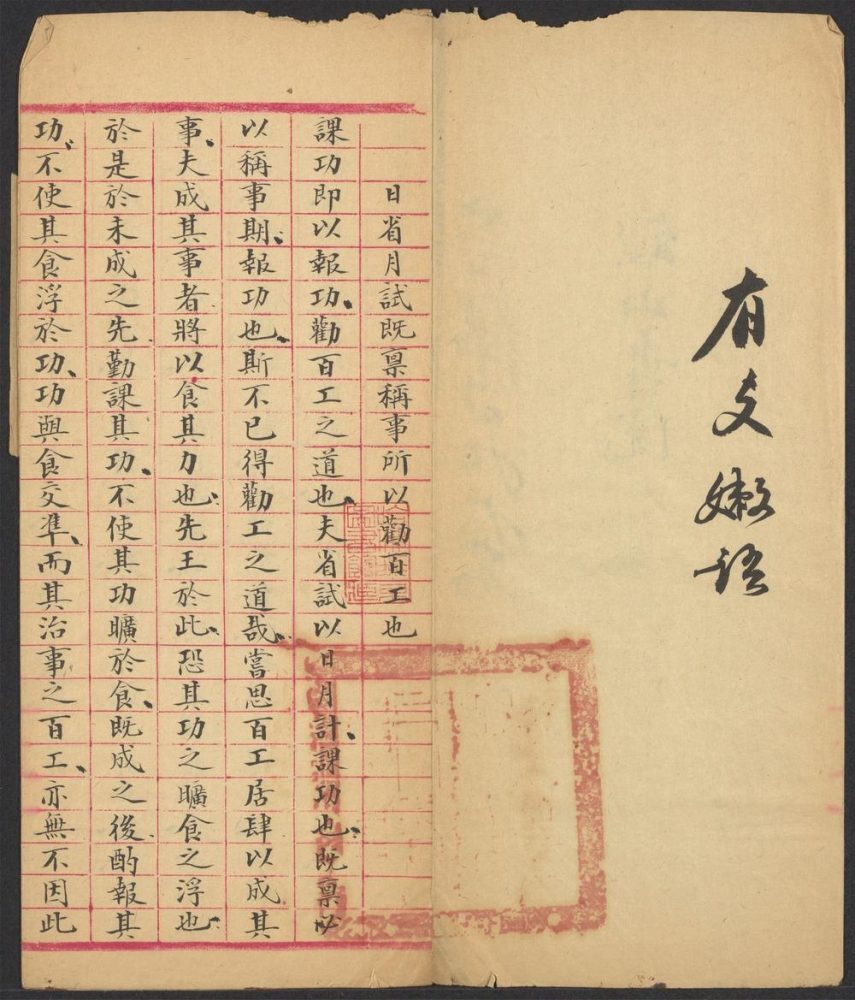 有嫩語
日省月試既禀稱事所以勸百工也
課功即以報功、勸百工之道也、夫省試以日月計、課功也、既禀必
以稱事期、報功也、斯不已得勸工之道哉、嘗思百工居肆以成其
事、夫成其事者將以食其力也、先王於此、恐其功之曠食之浮也、
於是於未成之先、勤課其功、不使其功曠於食、既成之後、酌報其
功、不使其食浮於功、功與食交凖、而其治事之百工、亦無不因此